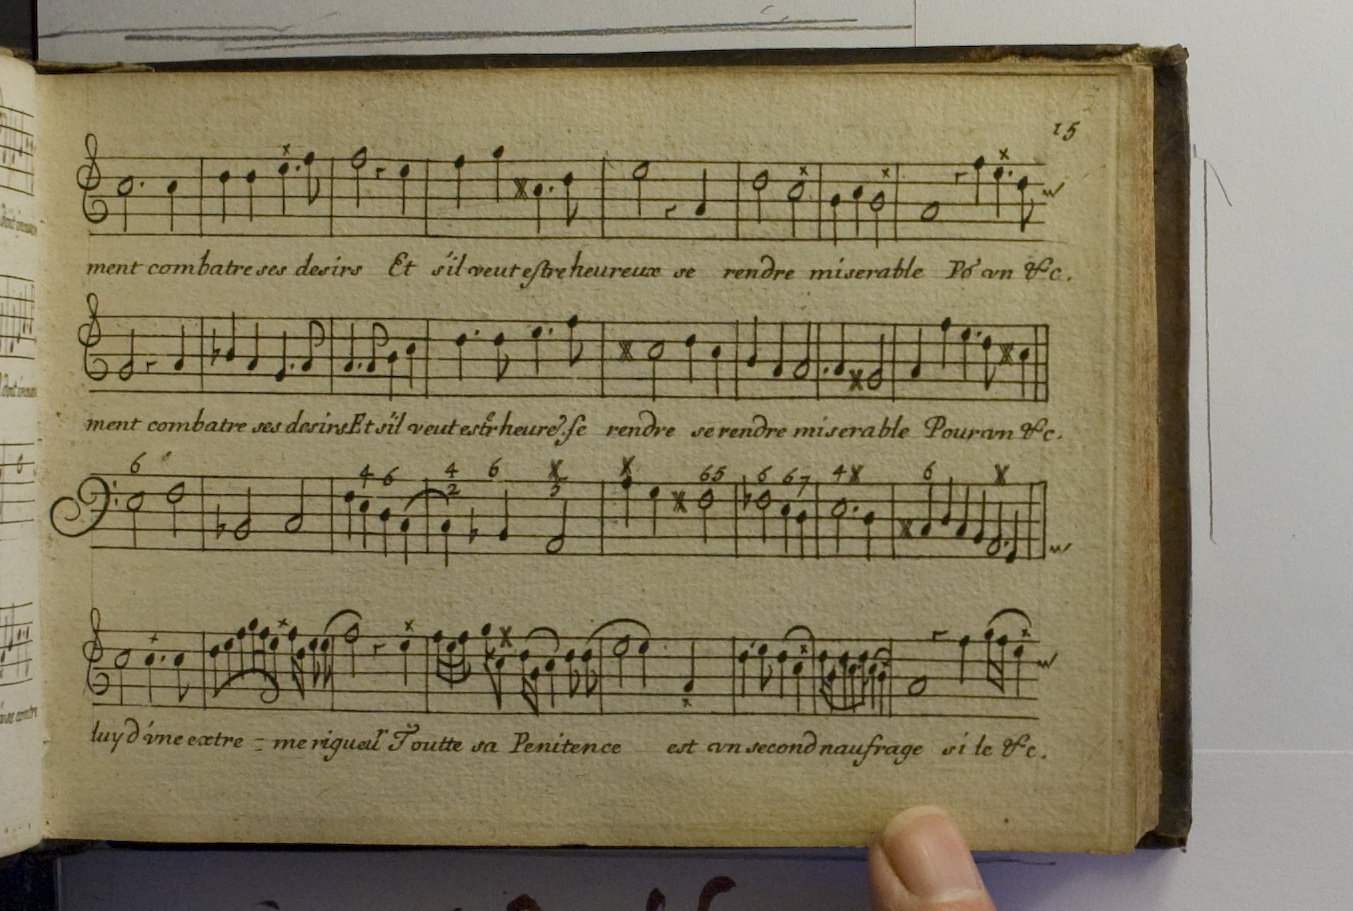 15
ment combatre ses desirs Et s'il veut estre heureux se rendre miserable Po' vn &c.
ment combatre ses desirs Et s'il veut estr heure se rendre se rendre miserable Pour vn &c.
6 4 6 4 2 6 5 6 5 6 6 7 4 6
luy d'vne extre = me rigueur Toutte sa Penitence est vn second naufrage si le &c.